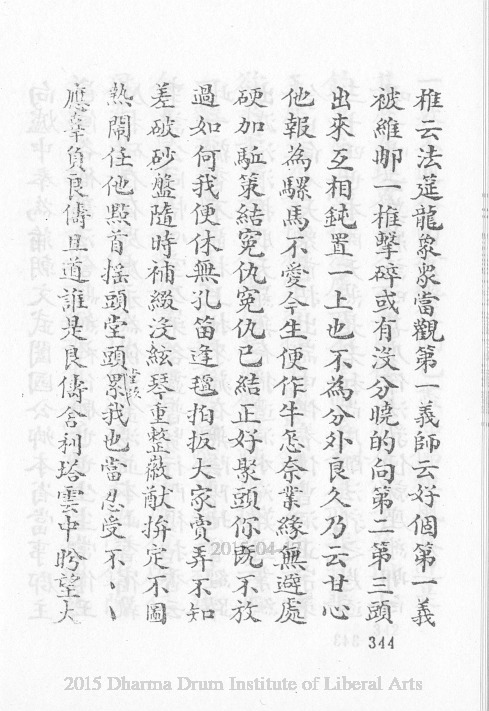 椎云法筵龍象眾當觀第一義師云好個第一義
被維那一椎擊碎或有沒分曉的向第二第三頭
出來互相鈍置一上也不為分外良久乃云甘心
他報為騾馬不愛今生便作牛怎奈業緣無避處
硬加駈策結冤仇冤仇已結正好聚頭你既不放
過如何我便休無孔笛逢氊拍板大家賣弄不知
差破砂盤隨時補綴沒絃琴重整徽猷拚定不圖
熱閙任他點首搖頭堂頭累我也當忍受不
應辜負良儔且道誰是良儔舍利塔雲中盻望大
344
2015-04-
2015 Dharma Drum Institute of Liberal Arts